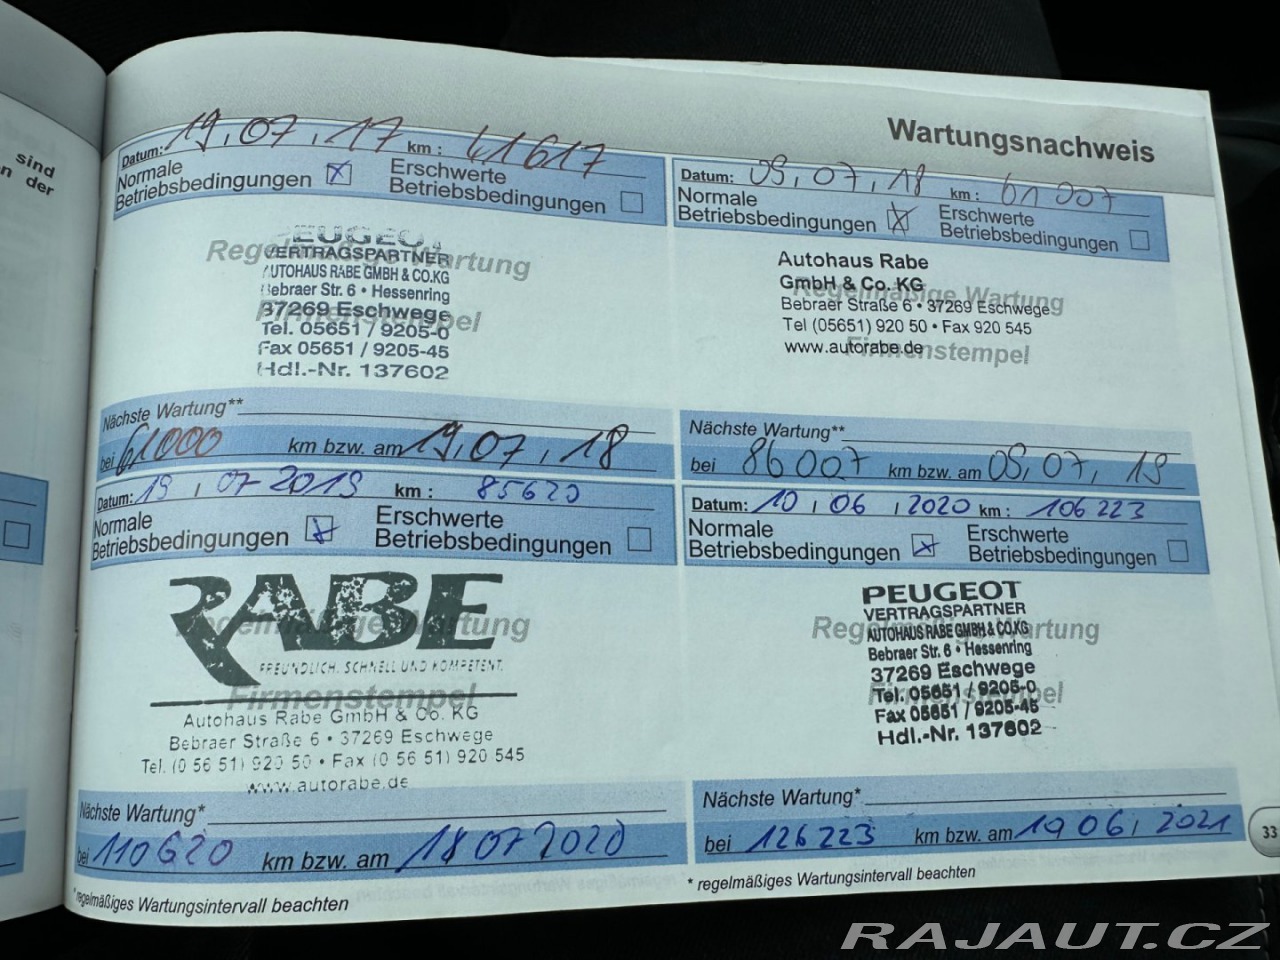 sind
n der
Wartungsnachweis
Datum: 19.07.17 km: 41617
Normale
Betriebsbedingungen
Erschwerte
Betriebsbedingungen
PEUGEOT
VERTRAGSPARTNER
AUTOHAUS RABE GMBH & CO.KG
Bebraer Str. 6 • Hessenring
37269 Eschwege
Tel. 05651 / 9205-0
Fax 05651 / 9205-45
Hdl.-Nr. 137602
Regelmäßige Wartung
Firmenstempel
Nächste Wartung**
bei 61000 km bzw. am 19.07.18
Datum: 09.07.18 km: 61007
Normale
Betriebsbedingungen
Erschwerte
Betriebsbedingungen
Autohaus Rabe
GmbH & Co. KG
Bebraer Straße 6 • 37269 Eschwege
Tel (05651) 920 50 • Fax 920 545
www.autorabe.de
Regelmäßige Wartung
Firmenstempel
Nächste Wartung**
bei 86007 km bzw. am 09.07.19
Datum: 19.07 2019 km: 85620
Normale
Betriebsbedingungen
Erschwerte
Betriebsbedingungen
RABE
FREUNDLICH. SCHNELL UND KOMPETENT.
Autohaus Rabe GmbH & Co. KG
Bebraer Straße 6 • 37269 Eschwege
Tel. (0 56 51) 920 50 • Fax (0 56 51) 920 545
www.autorabe.de
Regelmäßige Wartung
Firmenstempel
Nächste Wartung*
bei 110620 km bzw. am 18.07 2020
* regelmäßiges Wartungsintervall beachten
Datum: 10.06.2020 km: 106223
Normale
Betriebsbedingungen
Erschwerte
Betriebsbedingungen
PEUGEOT
VERTRAGSPARTNER
AUTOHAUS RABE GMBH & CO.KG
Bebraer Str. 6 • Hessenring
37269 Eschwege
Tel. 05651 / 9205-0
Fax 05651 / 9205-45
Hdl.-Nr. 137602
Regelmäßige Wartung
Firmenstempel
Nächste Wartung*
bei 126223 km bzw. am 10 06. 2021
* regelmäßiges Wartungsintervall beachten
33
RAJAUT.CZ